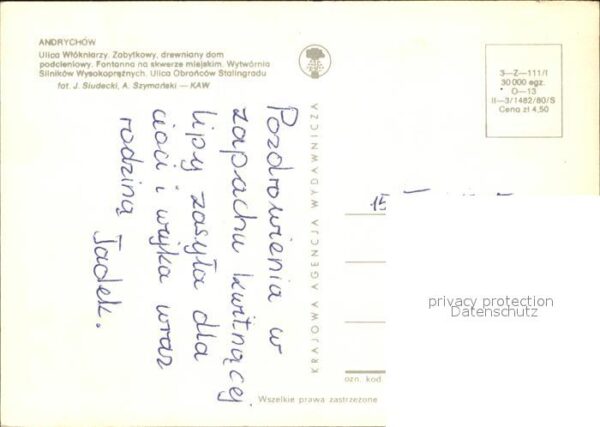 ANDRYCHÓW
Ulica Włókniarzy. Zabytkowy, drewniany dom
podcieniowy. Fontanna na skwerze miejskim. Wytwórnia
Silników Wysokoprężnych. Ulica Obrońców Stalingradu
fot. J. Siudecki, A. Szymański — KAW
3—Z—111/I
30 000 egz.
O—13
II—3/1482/80/S
Cena zł 4,50
Pozdrowienia w
zapachu kwitnącej
lipy zasyła dla
cioci i wujka wraz
rodziną Tadek.
KRAJOWA AGENCJA WYDAWNICZA
privacy protection
Datenschutz
ozn. kod
Wszelkie prawa zastrzeżone